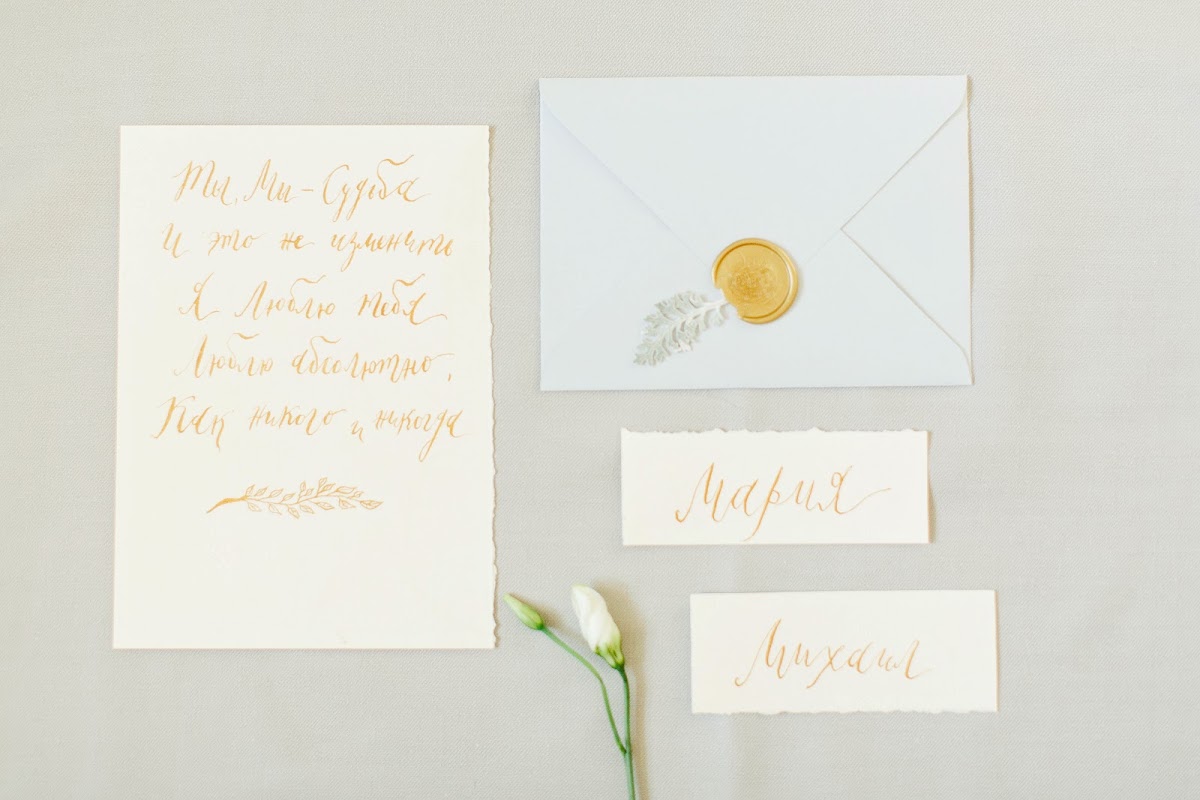 Ты, Ми - Судьба
И это не изменить
Я Люблю тебя
Люблю абсолютно,
Как никого и никогда
Мария
Михаил